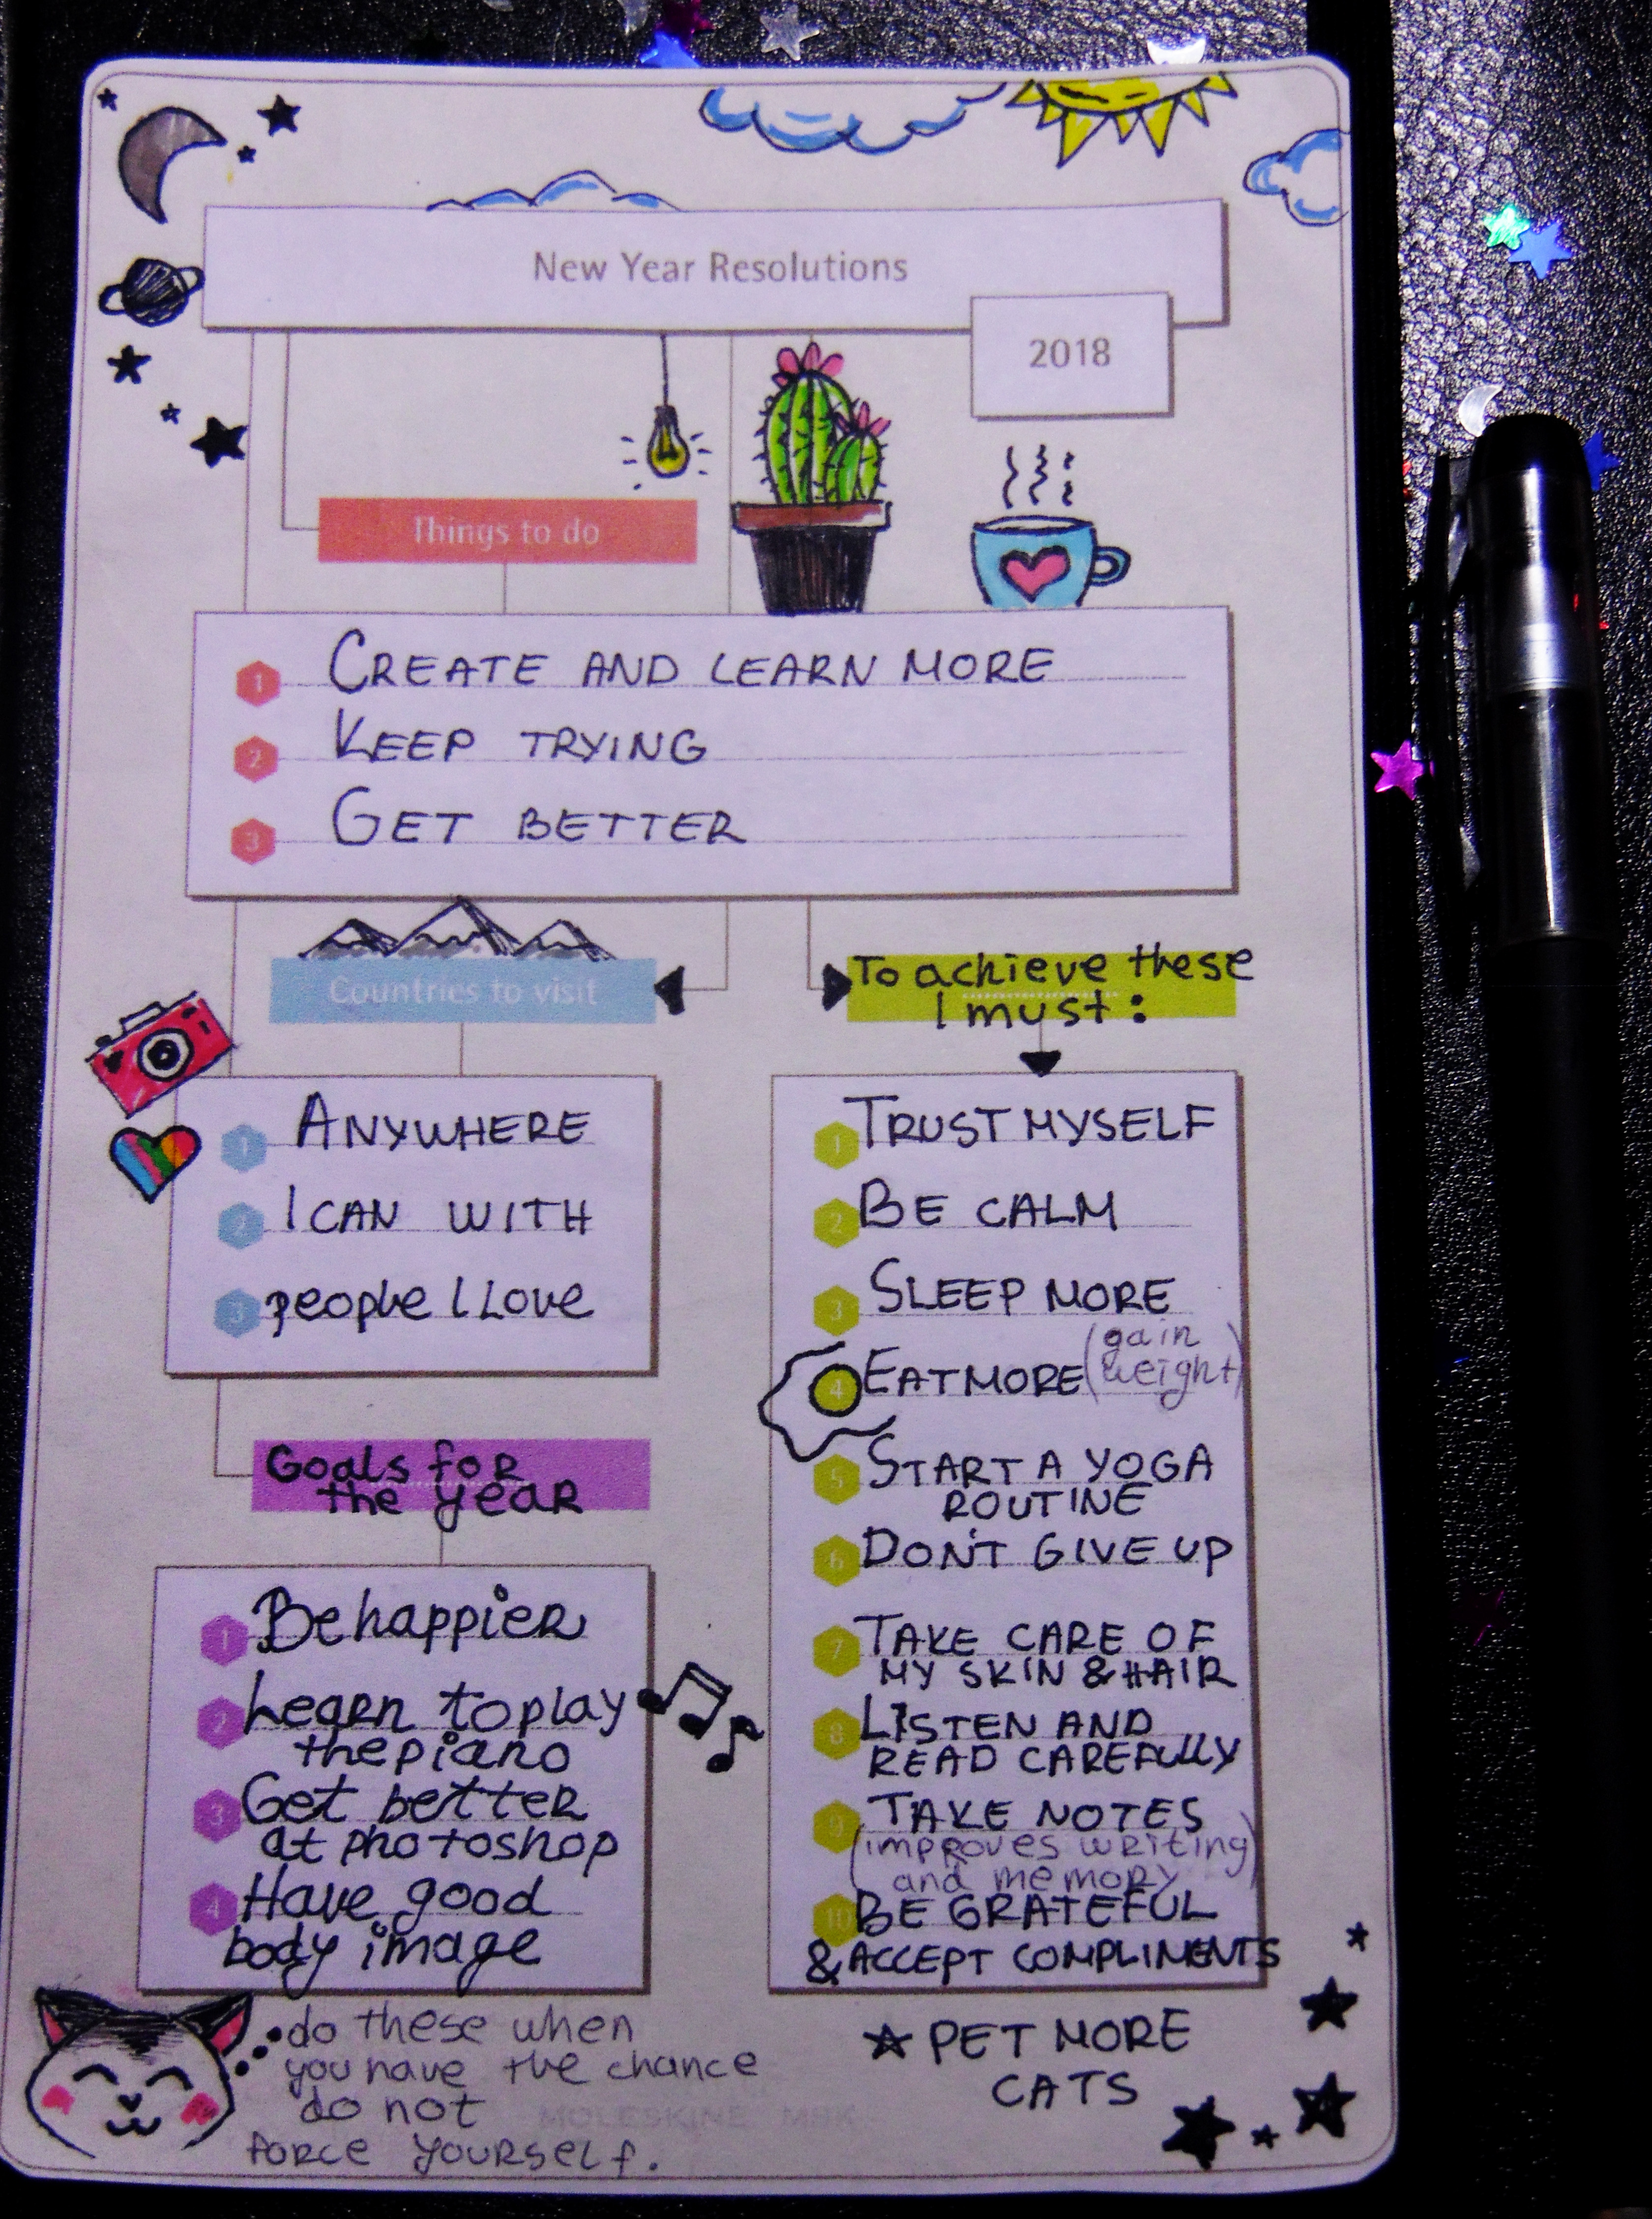 New Year Resolutions
2018
Things to do
1 CREATE AND LEARN MORE
2 KEEP TRYING
3 GET BETTER
Countries to visit
1 ANYWHERE
2 I CAN WITH
3 people I Love
To achieve these
I must:
1 TRUST MYSELF
2 BE CALM
3 SLEEP MORE
4 EAT MORE (gain
weight)
5 START A YOGA
ROUTINE
6 DON'T GIVE UP
7 TAKE CARE OF
MY SKIN & HAIR
8 LISTEN AND
READ CAREFULLY
9 TAKE NOTES
(improves writing
and memory)
10 BE GRATEFUL
& ACCEPT COMPLIMENTS
Goals for
the year
1 Be happier
2 Learn to play
the piano
3 Get better
at photoshop
4 Have good
body image
do these when
you have the chance
do not
force yourself.
PET MORE
CATS
MOLESKINE